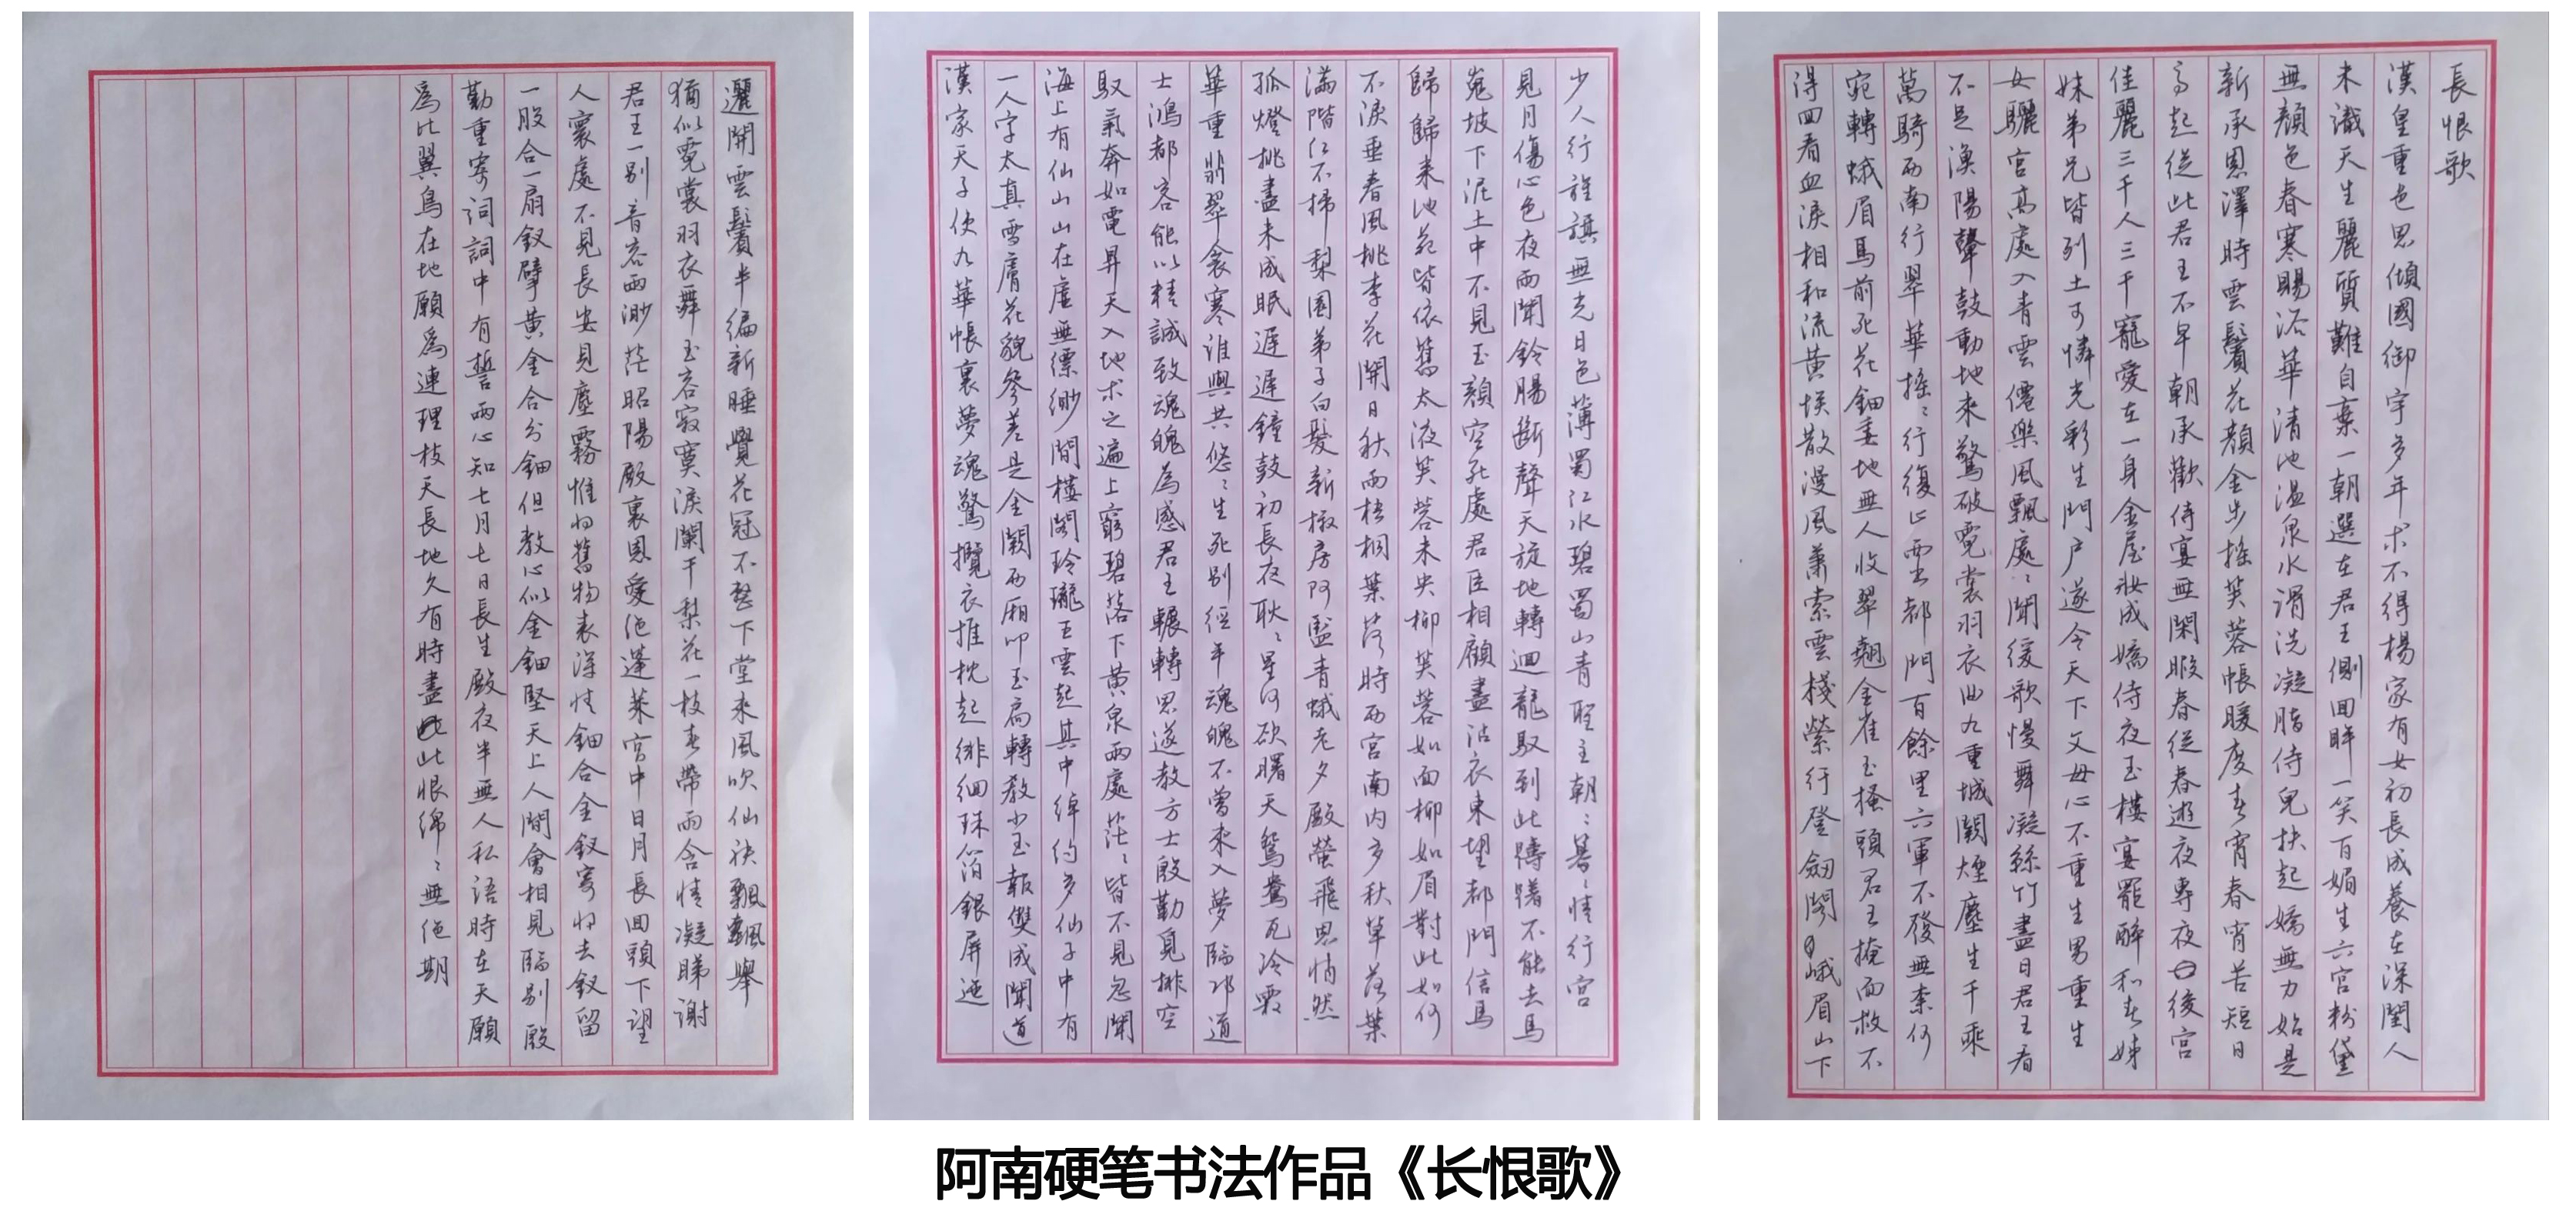 長恨歌
漢皇重色思傾國御宇多年求不得楊家有女初長成養在深閨人
未識天生麗質難自棄一朝選在君王側回眸一笑百媚生六宮粉黛
無顏色春寒賜浴華清池溫泉水滑洗凝脂侍兒扶起嬌無力始是
新承恩澤時雲鬢花顏金步搖芙蓉帳暖度春宵春宵苦短日
高起從此君王不早朝承歡侍宴無閑暇春從春遊夜專夜後宮
佳麗三千人三千寵愛在一身金屋妝成嬌侍夜玉樓宴罷醉和春姊
妹弟兄皆列土可憐光彩生門戶遂令天下父母心不重生男重生
女驪宮高處入青雲僊樂風飄處〻聞緩歌慢舞凝絲竹盡日君王看
不足漁陽鼙鼓動地來驚破霓裳羽衣曲九重城闕煙塵生千乘
萬騎西南行翠華搖〻行復止西出都門百餘里六軍不發無奈何
宛轉蛾眉馬前死花鈿委地無人收翠翹金雀玉搔頭君王掩面救不
得回看血淚相和流黃埃散漫風蕭索雲棧縈紆登劍閣峨眉山下
少人行旌旗無光日色薄蜀江水碧蜀山青聖主朝〻暮〻情行宮
見月傷心色夜雨聞鈴腸斷聲天旋地轉迴龍馭到此躊躇不能去馬
嵬坡下泥土中不見玉顏空死處君臣相顧盡沾衣東望都門信馬
歸歸來池苑皆依舊太液芙蓉未央柳芙蓉如面柳如眉對此如何
不淚垂春風桃李花開日秋雨梧桐葉落時西宮南內多秋草落葉
滿階紅不掃梨園弟子白髮新椒房阿監青娥老夕殿螢飛思悄然
孤燈挑盡未成眠遲遲鐘鼓初長夜耿〻星河欲曙天鴛鴦瓦冷霜
華重翡翠衾寒誰與共悠〻生死別經年魂魄不曾來入夢臨邛道
士鴻都客能以精誠致魂魄為感君王輾轉思遂教方士殷勤覓排空
馭氣奔如電昇天入地求之遍上窮碧落下黃泉兩處茫〻皆不見忽聞
海上有仙山山在虛無縹緲間樓閣玲瓏五雲起其中綽約多仙子中有
一人字太真雪膚花貌參差是金闕西廂叩玉扃轉教小玉報雙成聞道
漢家天子使九華帳裏夢魂驚攬衣推枕起徘徊珠箔銀屏迤
邐開雲鬢半偏新睡覺花冠不整下堂來風吹仙袂飄飄舉
猶似霓裳羽衣舞玉容寂寞淚闌干梨花一枝春帶雨含情凝睇謝
君王一別音容兩渺茫昭陽殿裏恩愛絕蓬萊宮中日月長回頭下望
人寰處不見長安見塵霧惟將舊物表深情鈿合金釵寄將去釵留
一股合一扇釵擘黃金合分鈿但教心似金鈿堅天上人間會相見臨別殷
勤重寄詞詞中有誓兩心知七月七日長生殿夜半無人私語時在天願
為比翼鳥在地願為連理枝天長地久有時盡此恨綿〻無絕期
阿南硬笔书法作品《长恨歌》